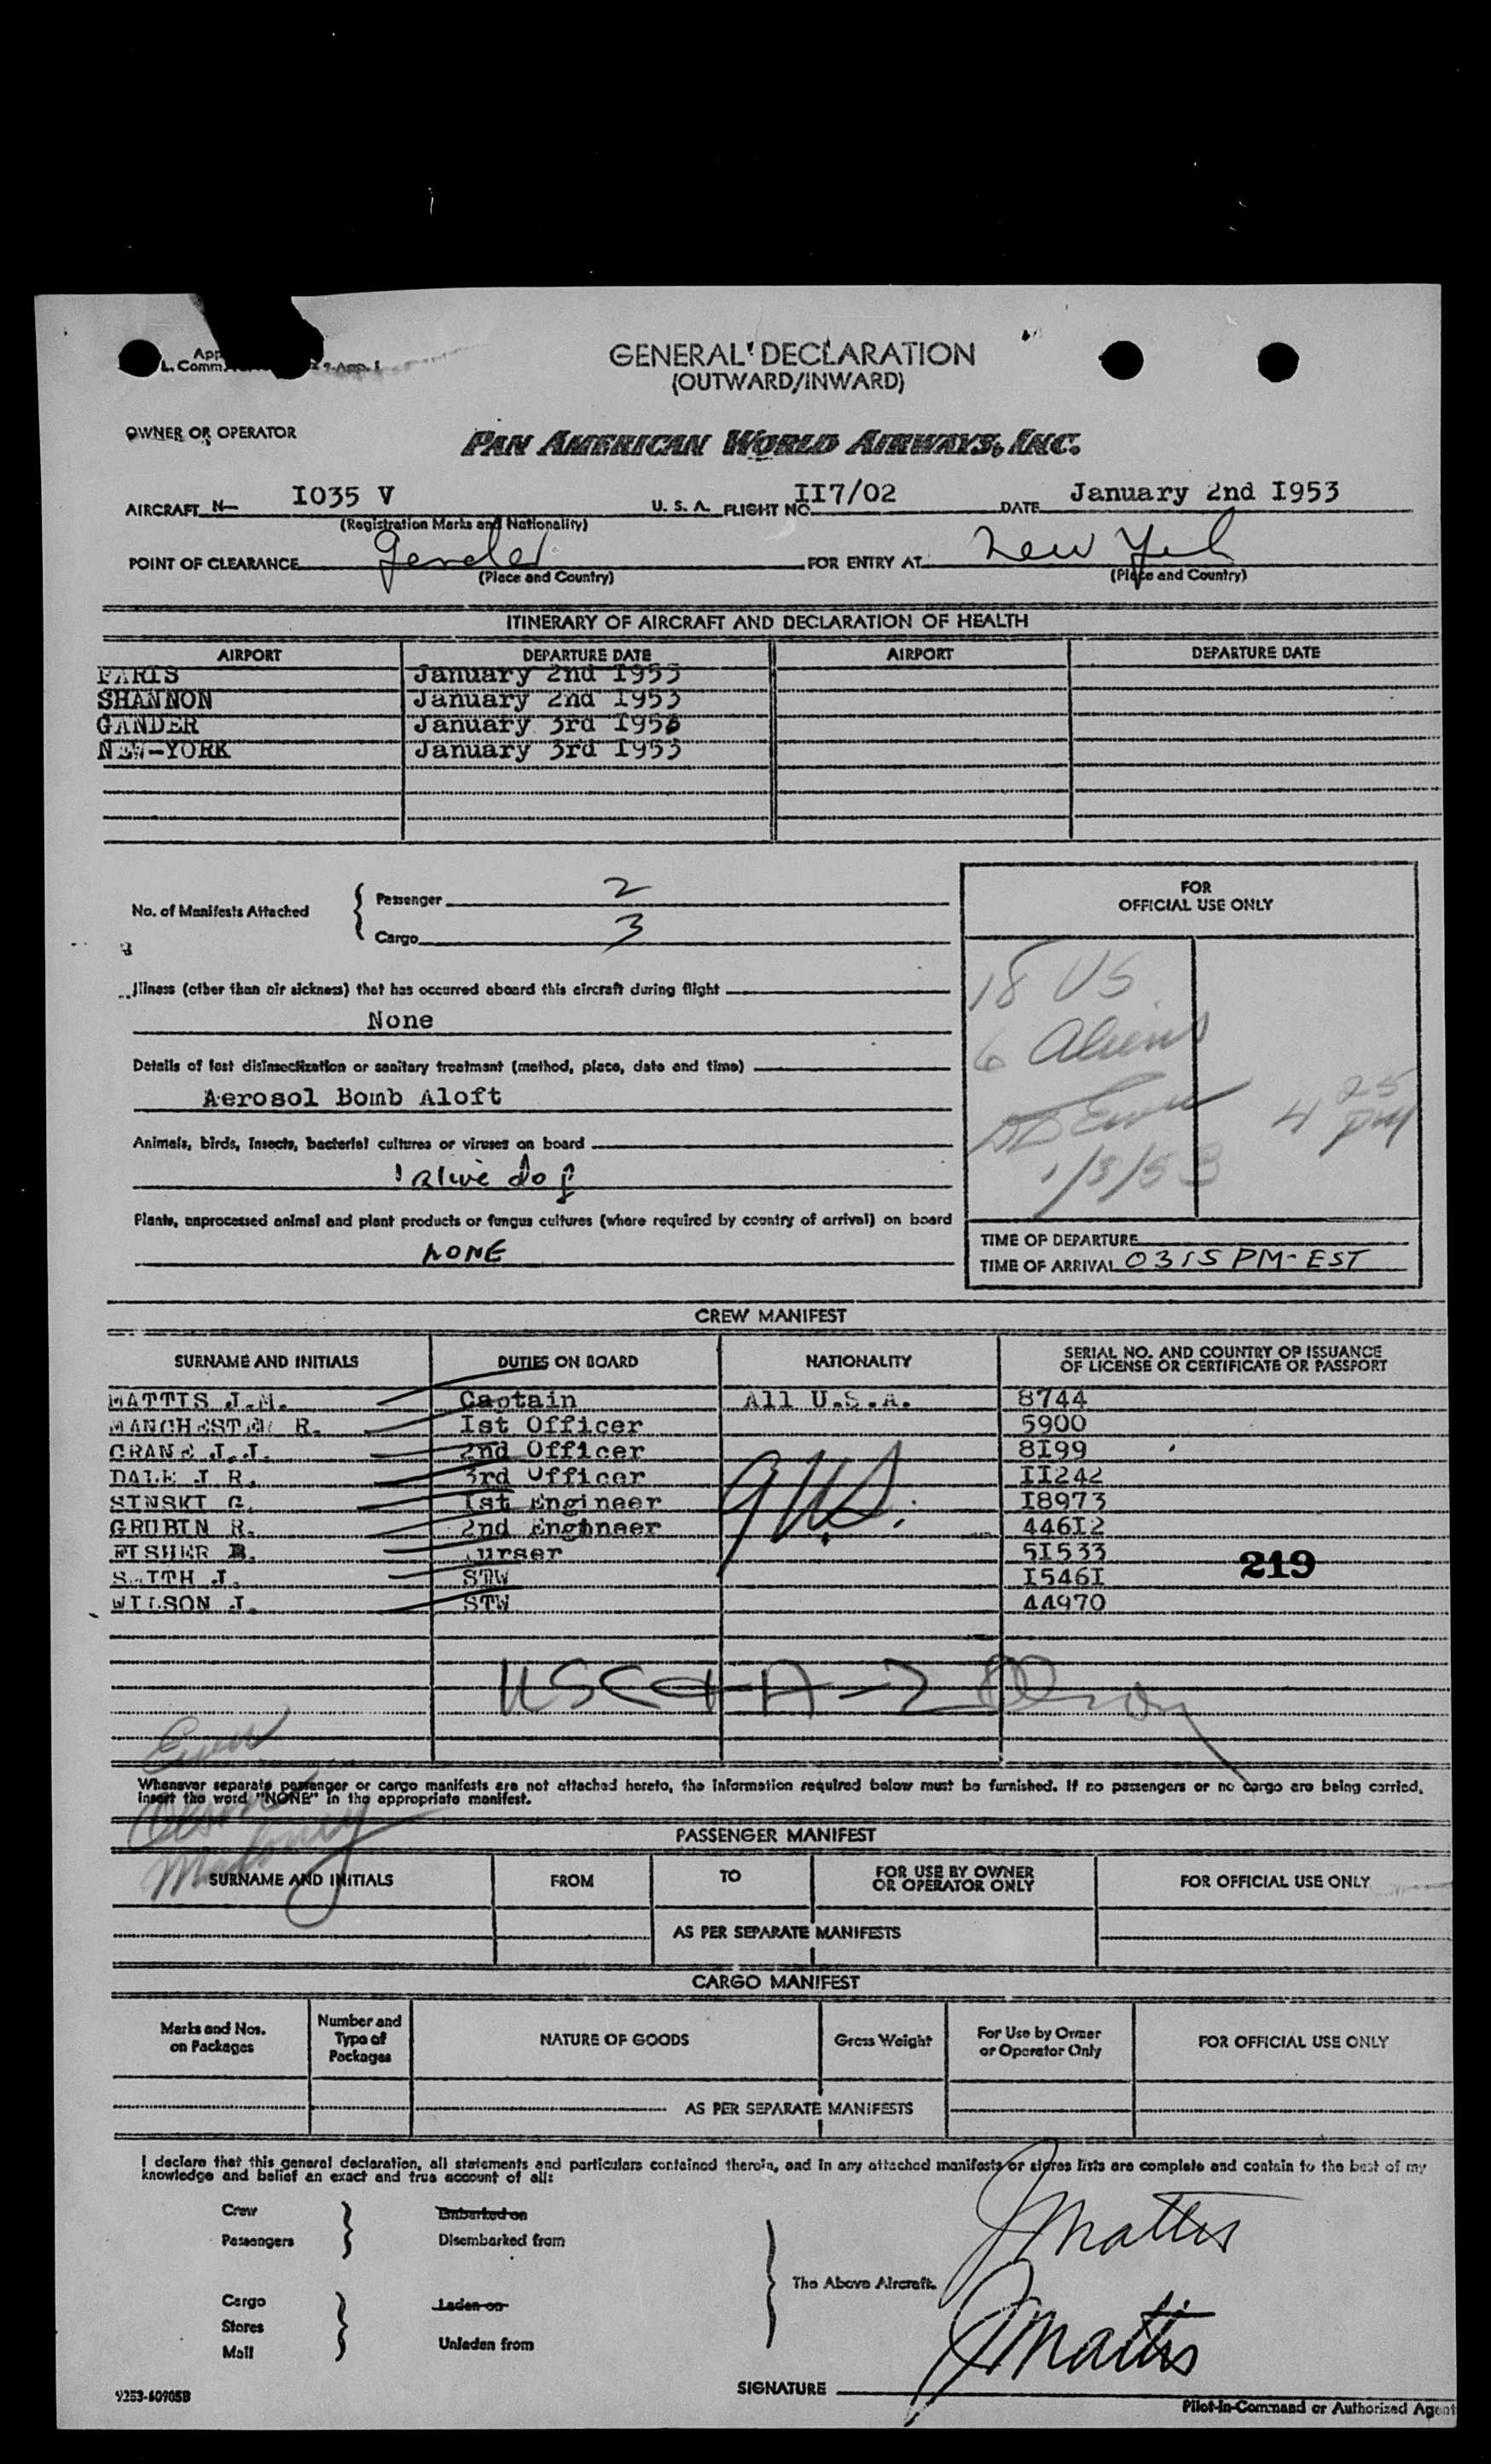 App
L. Comm. 9-App. 1
GENERAL DECLARATION
(OUTWARD/INWARD)
OWNER OR OPERATOR
PAN AMERICAN WORLD AIRWAYS, INC.
AIRCRAFT N- I035 V U. S. A. FLIGHT NO. II7/02 DATE January 2nd I953
(Registration Marks and Nationality)
POINT OF CLEARANCE Gander FOR ENTRY AT New York
(Place and Country) (Place and Country)
ITINERARY OF AIRCRAFT AND DECLARATION OF HEALTH
AIRPORT DEPARTURE DATE AIRPORT DEPARTURE DATE
PARIS January 2nd I953
SHANNON January 2nd I953
GANDER January 3rd I953
NEW-YORK January 3rd I953
No. of Manifests Attached
Passenger 2
Cargo 3
FOR
OFFICIAL USE ONLY
18 US
6 Aliens
1/3/53
4 25 PM
Illness (other than air sickness) that has occurred aboard this aircraft during flight
None
Details of last disinsectization or sanitary treatment (method, place, date and time)
Aerosol Bomb Aloft
Animals, birds, insects, bacterial cultures or viruses on board
1 alive dog
Plants, unprocessed animal and plant products or fungus cultures (where required by country of arrival) on board
NONE
TIME OF DEPARTURE
TIME OF ARRIVAL 0315 PM-EST
CREW MANIFEST
SURNAME AND INITIALS DUTIES ON BOARD NATIONALITY SERIAL NO. AND COUNTRY OF ISSUANCE
OF LICENSE OR CERTIFICATE OR PASSPORT
MATTIS J.M. Captain All U.S.A. 8744
MANCHESTER R. Ist Officer 5900
CRANE J.J. 2nd Officer 8I99
DALE J R. 3rd Officer II242
SINSKI G. Ist Engineer I8973
GRUBIN R. 2nd Enghneer 446I2
FISHER B. Purser 5I533
219
SMITH J. STW I546I
WILSON J. STW 44970
Whenever separate passenger or cargo manifests are not attached hereto, the information required below must be furnished. If no passengers or no cargo are being carried,
insert the word "NONE" in the appropriate manifest.
Maloney
PASSENGER MANIFEST
SURNAME AND INITIALS FROM TO FOR USE BY OWNER
OR OPERATOR ONLY FOR OFFICIAL USE ONLY
AS PER SEPARATE MANIFESTS
CARGO MANIFEST
Marks and Nos.
on Packages
Number and
Type of
Packages
NATURE OF GOODS
Gross Weight
For Use by Owner
or Operator Only
FOR OFFICIAL USE ONLY
AS PER SEPARATE MANIFESTS
I declare that this general declaration, all statements and particulars contained therein, and in any attached manifests or stores lists are complete and contain to the best of my
knowledge and belief an exact and true account of all:
Crew Embarked on
Passengers Disembarked from
JMattis
The Above Aircraft.
Cargo Laden on
Stores
Mail Unladen from
JMattis
SIGNATURE
9253-60905B
Pilot-in-Command or Authorized Agent